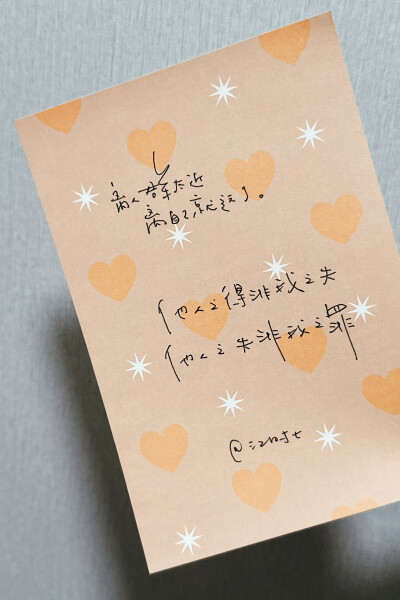 离人群太近
离自己就远了。
他人之得非我之失
他人之失非我之罪